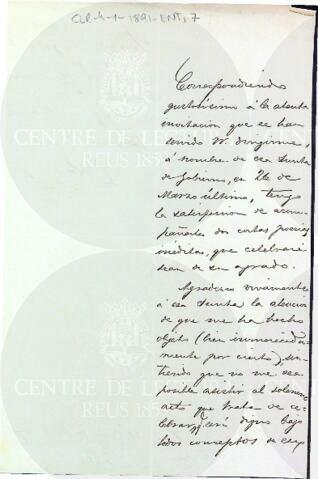 CLR-4-1-1891-ENT, 7
Correspondiendo
gustosisimo á la atenta
invitacion que se han
servido V. dirigirme,
á nombre de esa Junta
de Gobierno, en 26 de
Marzo último, tengo
la satisfaccion de acom-
pañarles dos cortas poesias
inéditas, que celebraré
sean de su agrado.
Agradezco vivamente
á esa Junta la atencion
de que me ha hecho
objeto (bien inmerecida-
mente por cierto), sin-
tiendo que no me sea
posible asistir al solemne
acto que trata de ce-
lebrar, que será digno bajo
todos conceptos de esa
CENTRE DE LECTURA
REUS 1859
CENTRE DE LECTURA
REUS 1859